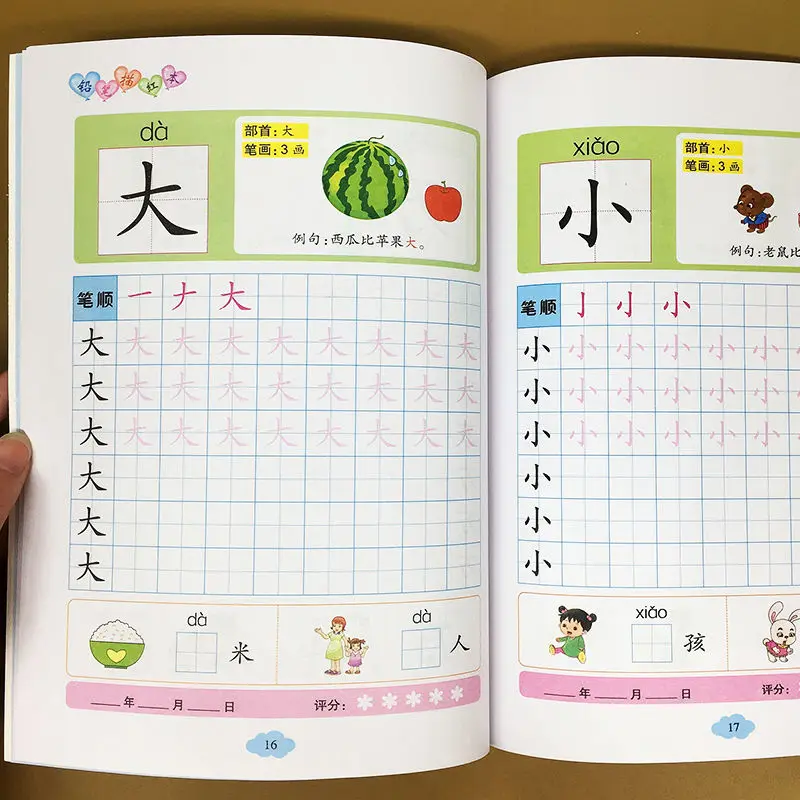 铅笔描红本
dà
大
部首：大
笔画：3画
例句：西瓜比苹果大。
笔顺 一 ナ 大
大 大 大 大 大 大 大 大 大
大 大 大 大 大 大 大 大 大
大 大 大 大 大 大 大 大 大
大
大
大
dà
米
dà
人
年 月 日 评分：
16
xiǎo
小
部首：小
笔画：3画
例句：老鼠比
笔顺 亅 小 小
小 小 小 小 小 小 小
小 小 小 小 小 小 小
小 小 小 小 小 小 小
小
小
小
xiǎo
孩
年 月 日 评分：
17